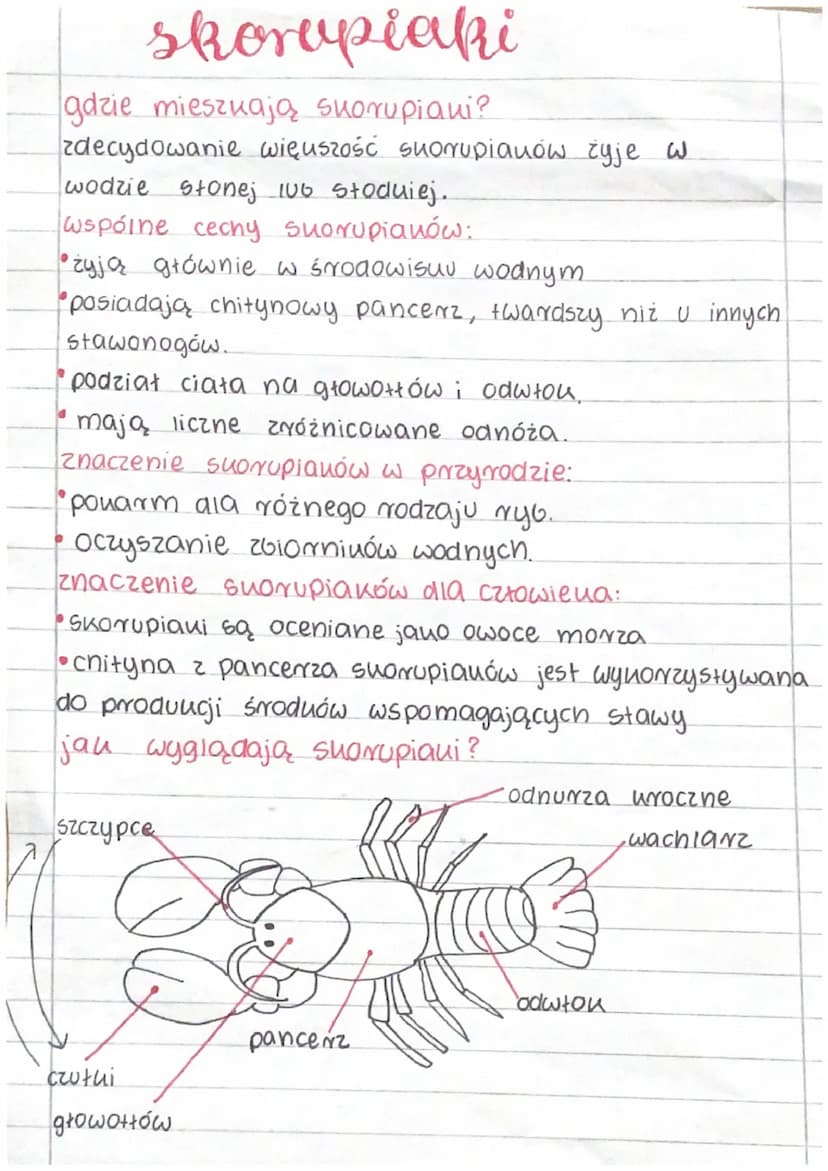 skorupiaki
gdzie mieszkają skorupiaki?
zdecydowanie większość skorupiaków żyje w
wodzie słonej lub słodkiej.
wspólne cechy skorupiaków:
•żyją głównie w środowisku wodnym
•posiadają chitynowy pancerz, twardszy niż u innych
stawonogów.
•podział ciała na głowotłów i odwłok.
•mają liczne zróżnicowane odnóża.
znaczenie skorupiaków w przyrodzie:
•pokarm dla różnego rodzaju ryb.
•oczyszanie zbiorników wodnych.
znaczenie skorupiaków dla człowieka:
•skorupiaki są oceniane jako owoce morza
•chityna z pancerza skorupiaków jest wykorzystywana
do produkcji środków wspomagających stawy
jak wyglądają skorupiaki?
odnurza kroczne
szczypce
wachlarz
odwłok
pancerz
czułki
głowotłów